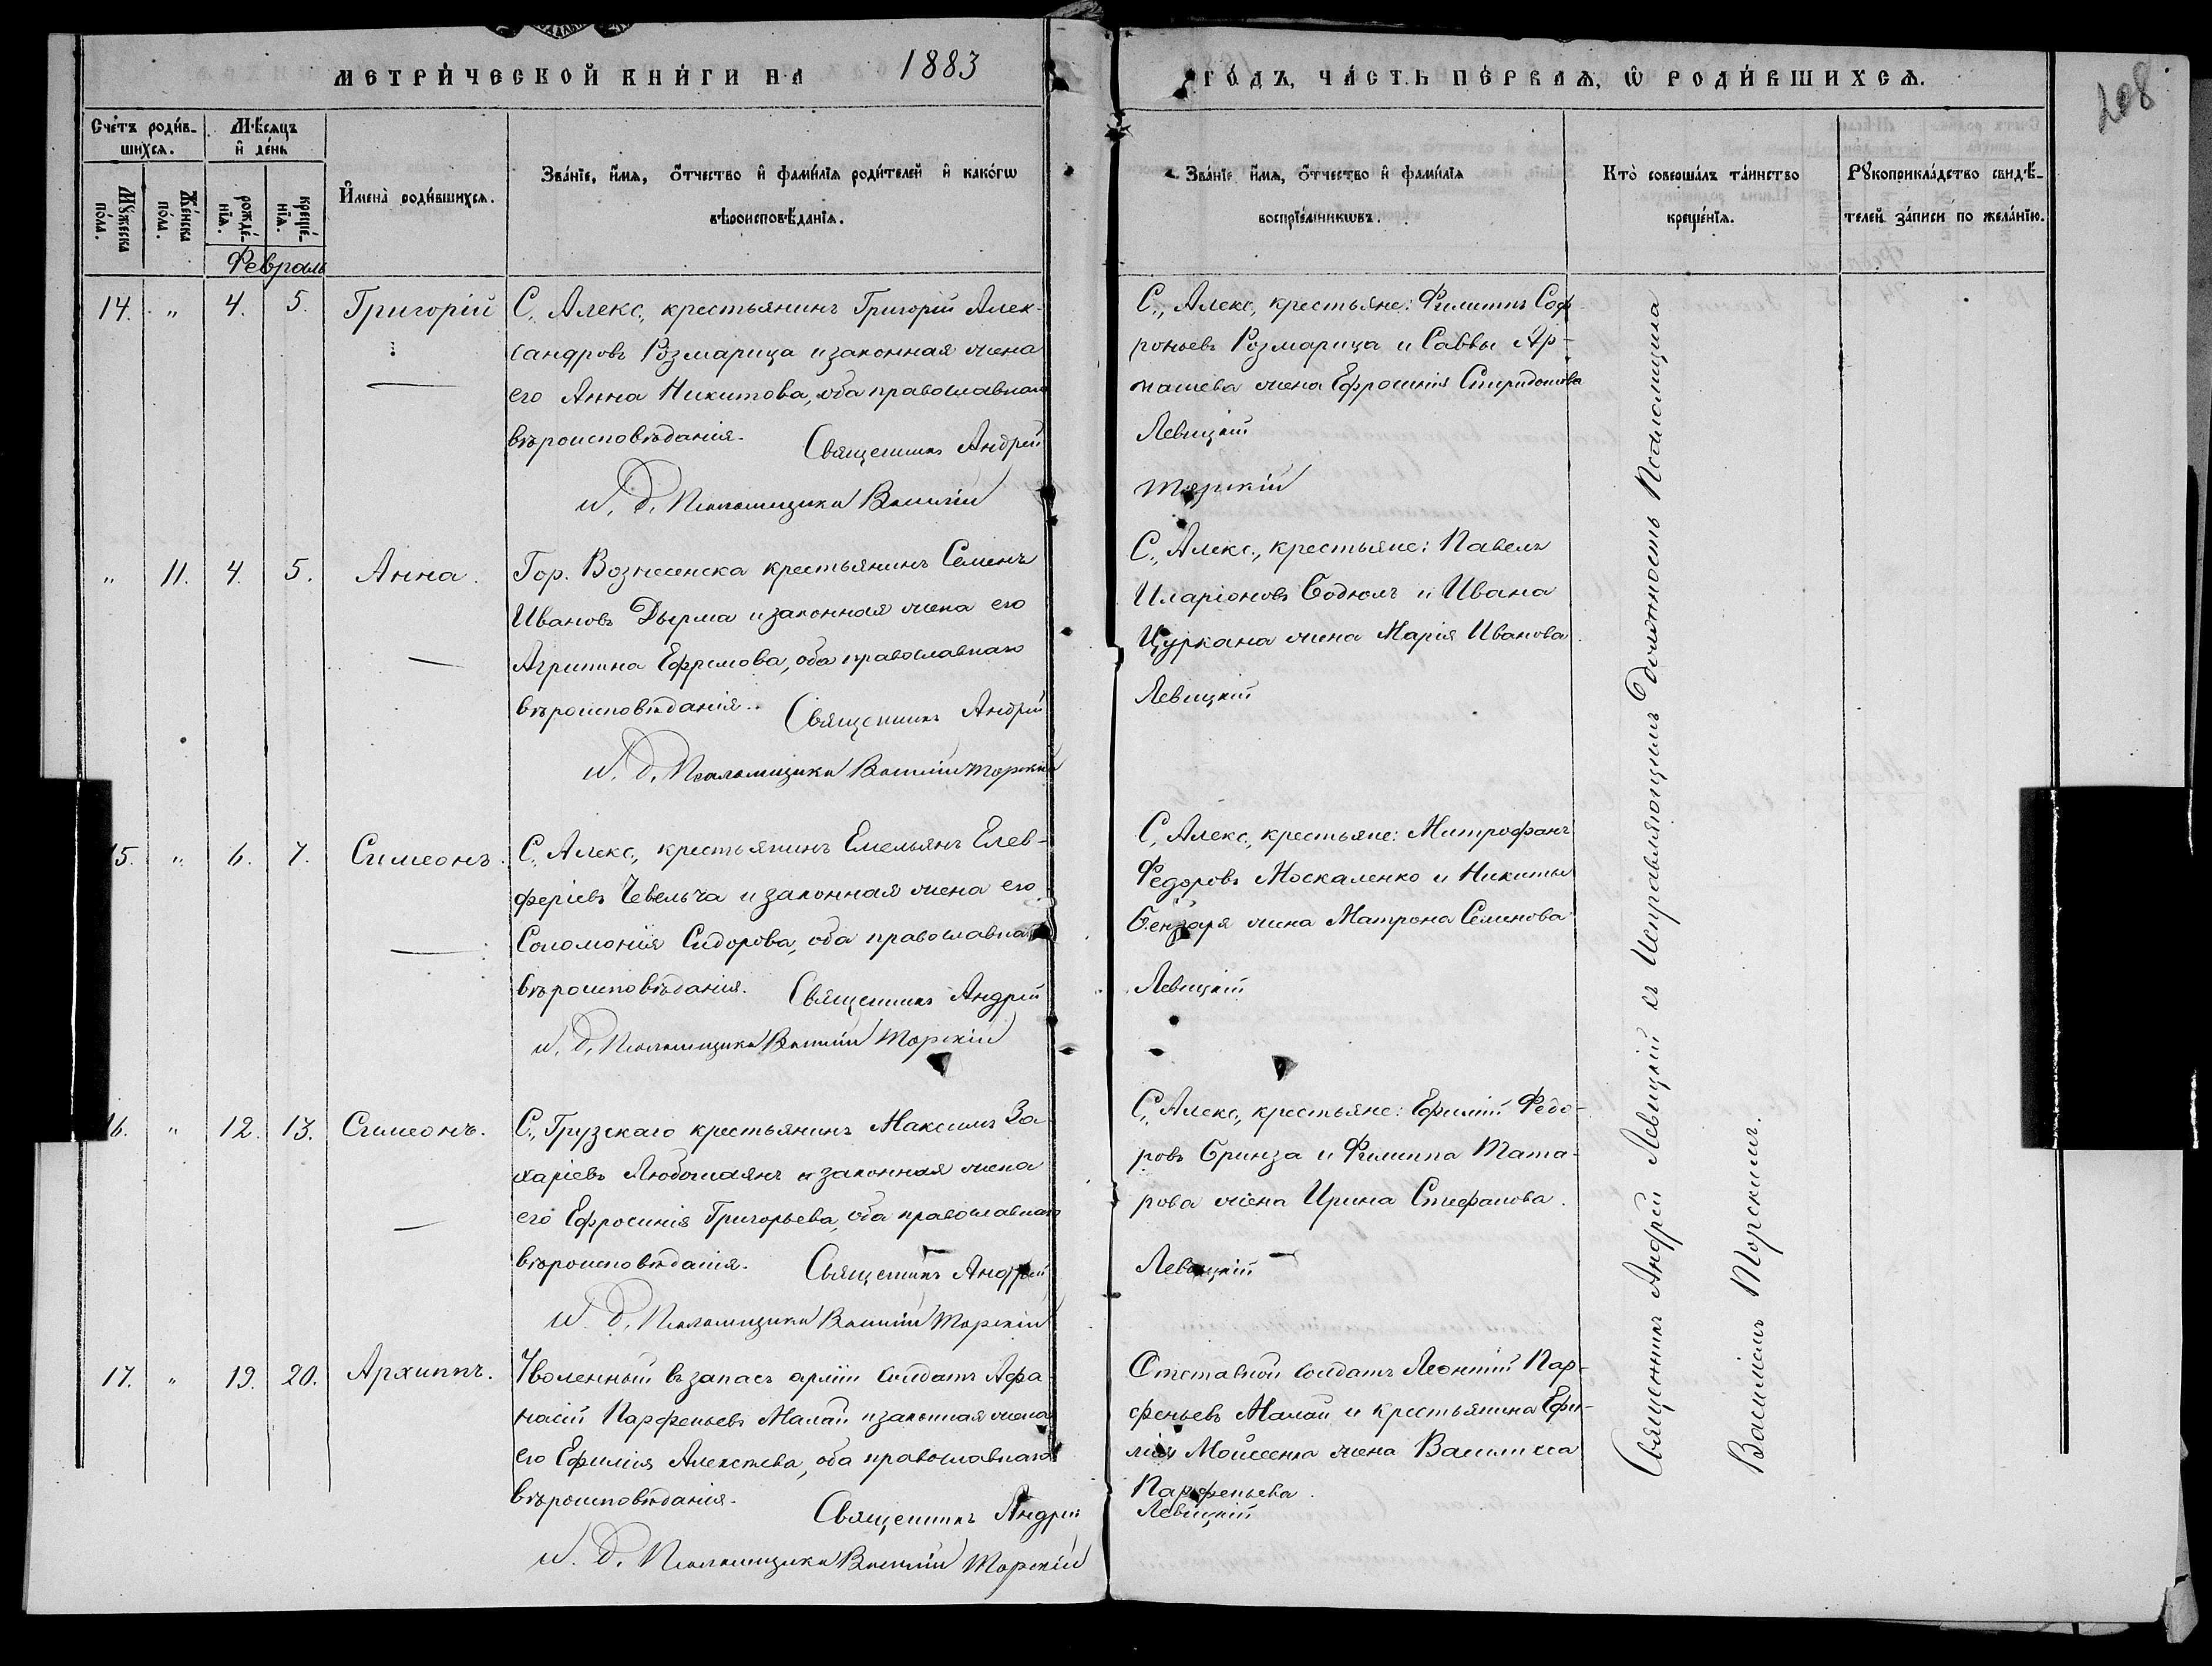 МЕТРИ́ЧЕСКОЙ КНИ́ГИ НА 1883
ГО́ДЪ, ЧА́СТЬ ПЕ́РВАѦ, Ѡ҆ РОДИ́ВШИХСѦ.
208
Сче́тъ роди́в-
шихсѧ.
Мꙋ́жеска по́ла.
Же́нска по́ла.
Мѣ́сѧцъ
и҆ де́нь
рожде́-нїѧ.
креще́-нїѧ.
И҆мена̀ роди́вшихсѧ.
Зва́нїе, и҆́мѧ, ѻ҆́тчество и҆ фами́лїѧ роди́телей и҆ како́гѡ
вѣроисповѣ́данїѧ.
Зва́нїе и҆́мѧ, ѻ҆́тчество и҆ фами́лїѧ
воспрїе́мникѡвъ.
Кто̀ соверша́лъ та́инство
креще́нїѧ.
Рꙋкоприкла́дство свидѣ́-
телей за́писи по жела́нїю.
Февраль
14. " 4. 5. Григорій
С. Алекс. крестьянинъ Григорій Алек-
сандровъ Розмарица и законная жена
его Анна Никитова, оба православнаго
вѣроисповѣданія.
Священникъ Андрей
И. д. Псаломщика Василій
С. Алекс. крестьяне: Филиппъ Соф-
роньевъ Розмарица и Саввы Ар-
нашева жена Ефросинія Спиридонова
Левицкій
Торскій
" 11. 4. 5. Анна.
Гор. Вознесенска крестьянинъ Семенъ
Ивановъ Дырма и законная жена его
Агрипина Ефремова, оба православнаго
вѣроисповѣданія.
Священникъ Андрей
И. д. Псаломщика Василій Торскій
С. Алекс. крестьяне: Павелъ
Иларіоновъ Бодюлъ и Ивана
Цуркана жена Марія Иванова.
Левицкій
15. " 6. 7. Симеонъ.
С. Алекс. крестьянинъ Емельянъ Елев-
феріевъ Чебельча и законная жена его
Соломонія Сидорова, оба православнаго
вѣроисповѣданія.
Священникъ Андрей
И. д. Псаломщика Василій Торскій
С. Алекс. крестьяне: Митрофанъ
Федоровъ Москаленко и Никиты
Бензаря жена Матрона Семенова
Левицкій
16. " 12. 13. Симеонъ.
С. Грузскаго крестьянинъ Максимъ За-
харіевъ Любошаянъ и законная жена
его Ефросинія Григорьева, оба православнаго
вѣроисповѣданія.
Священникъ Андрей
И. д. Псаломщика Василій Торскій
С. Алекс. крестьяне: Ефимій Федо-
ровъ Бринза и Филиппа Тата-
рова жена Ирина Стефанова.
Левицкій
17. " 19. 20. Архиппъ.
Уволенный въ запасъ арміи солдатъ Афа-
насій Парфеньевъ Малай и законная жена
его Ефимія Алексѣева, оба православнаго
вѣроисповѣданія.
Священникъ Андрей
И. д. Псаломщика Василій Торскій
Отставной солдатъ Леонтій Пар-
феньевъ Малай и крестьянина Ефи-
мія Моисеенка жена Василисса
Парфеньева.
Левицкій
Священникъ Андрей Левицкій съ Исправляющимъ должность Псаломщика
Василіемъ Торскимъ.